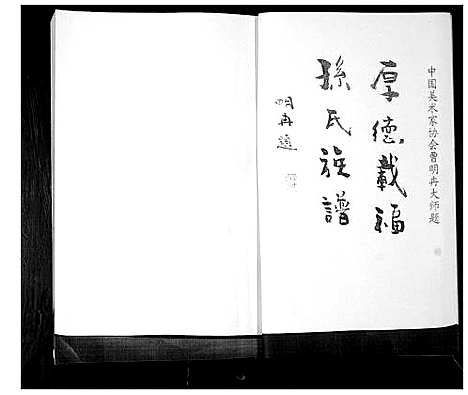 中国美术家协会曹明冉大师题
厚德載福
孫氏族譜
明冉題